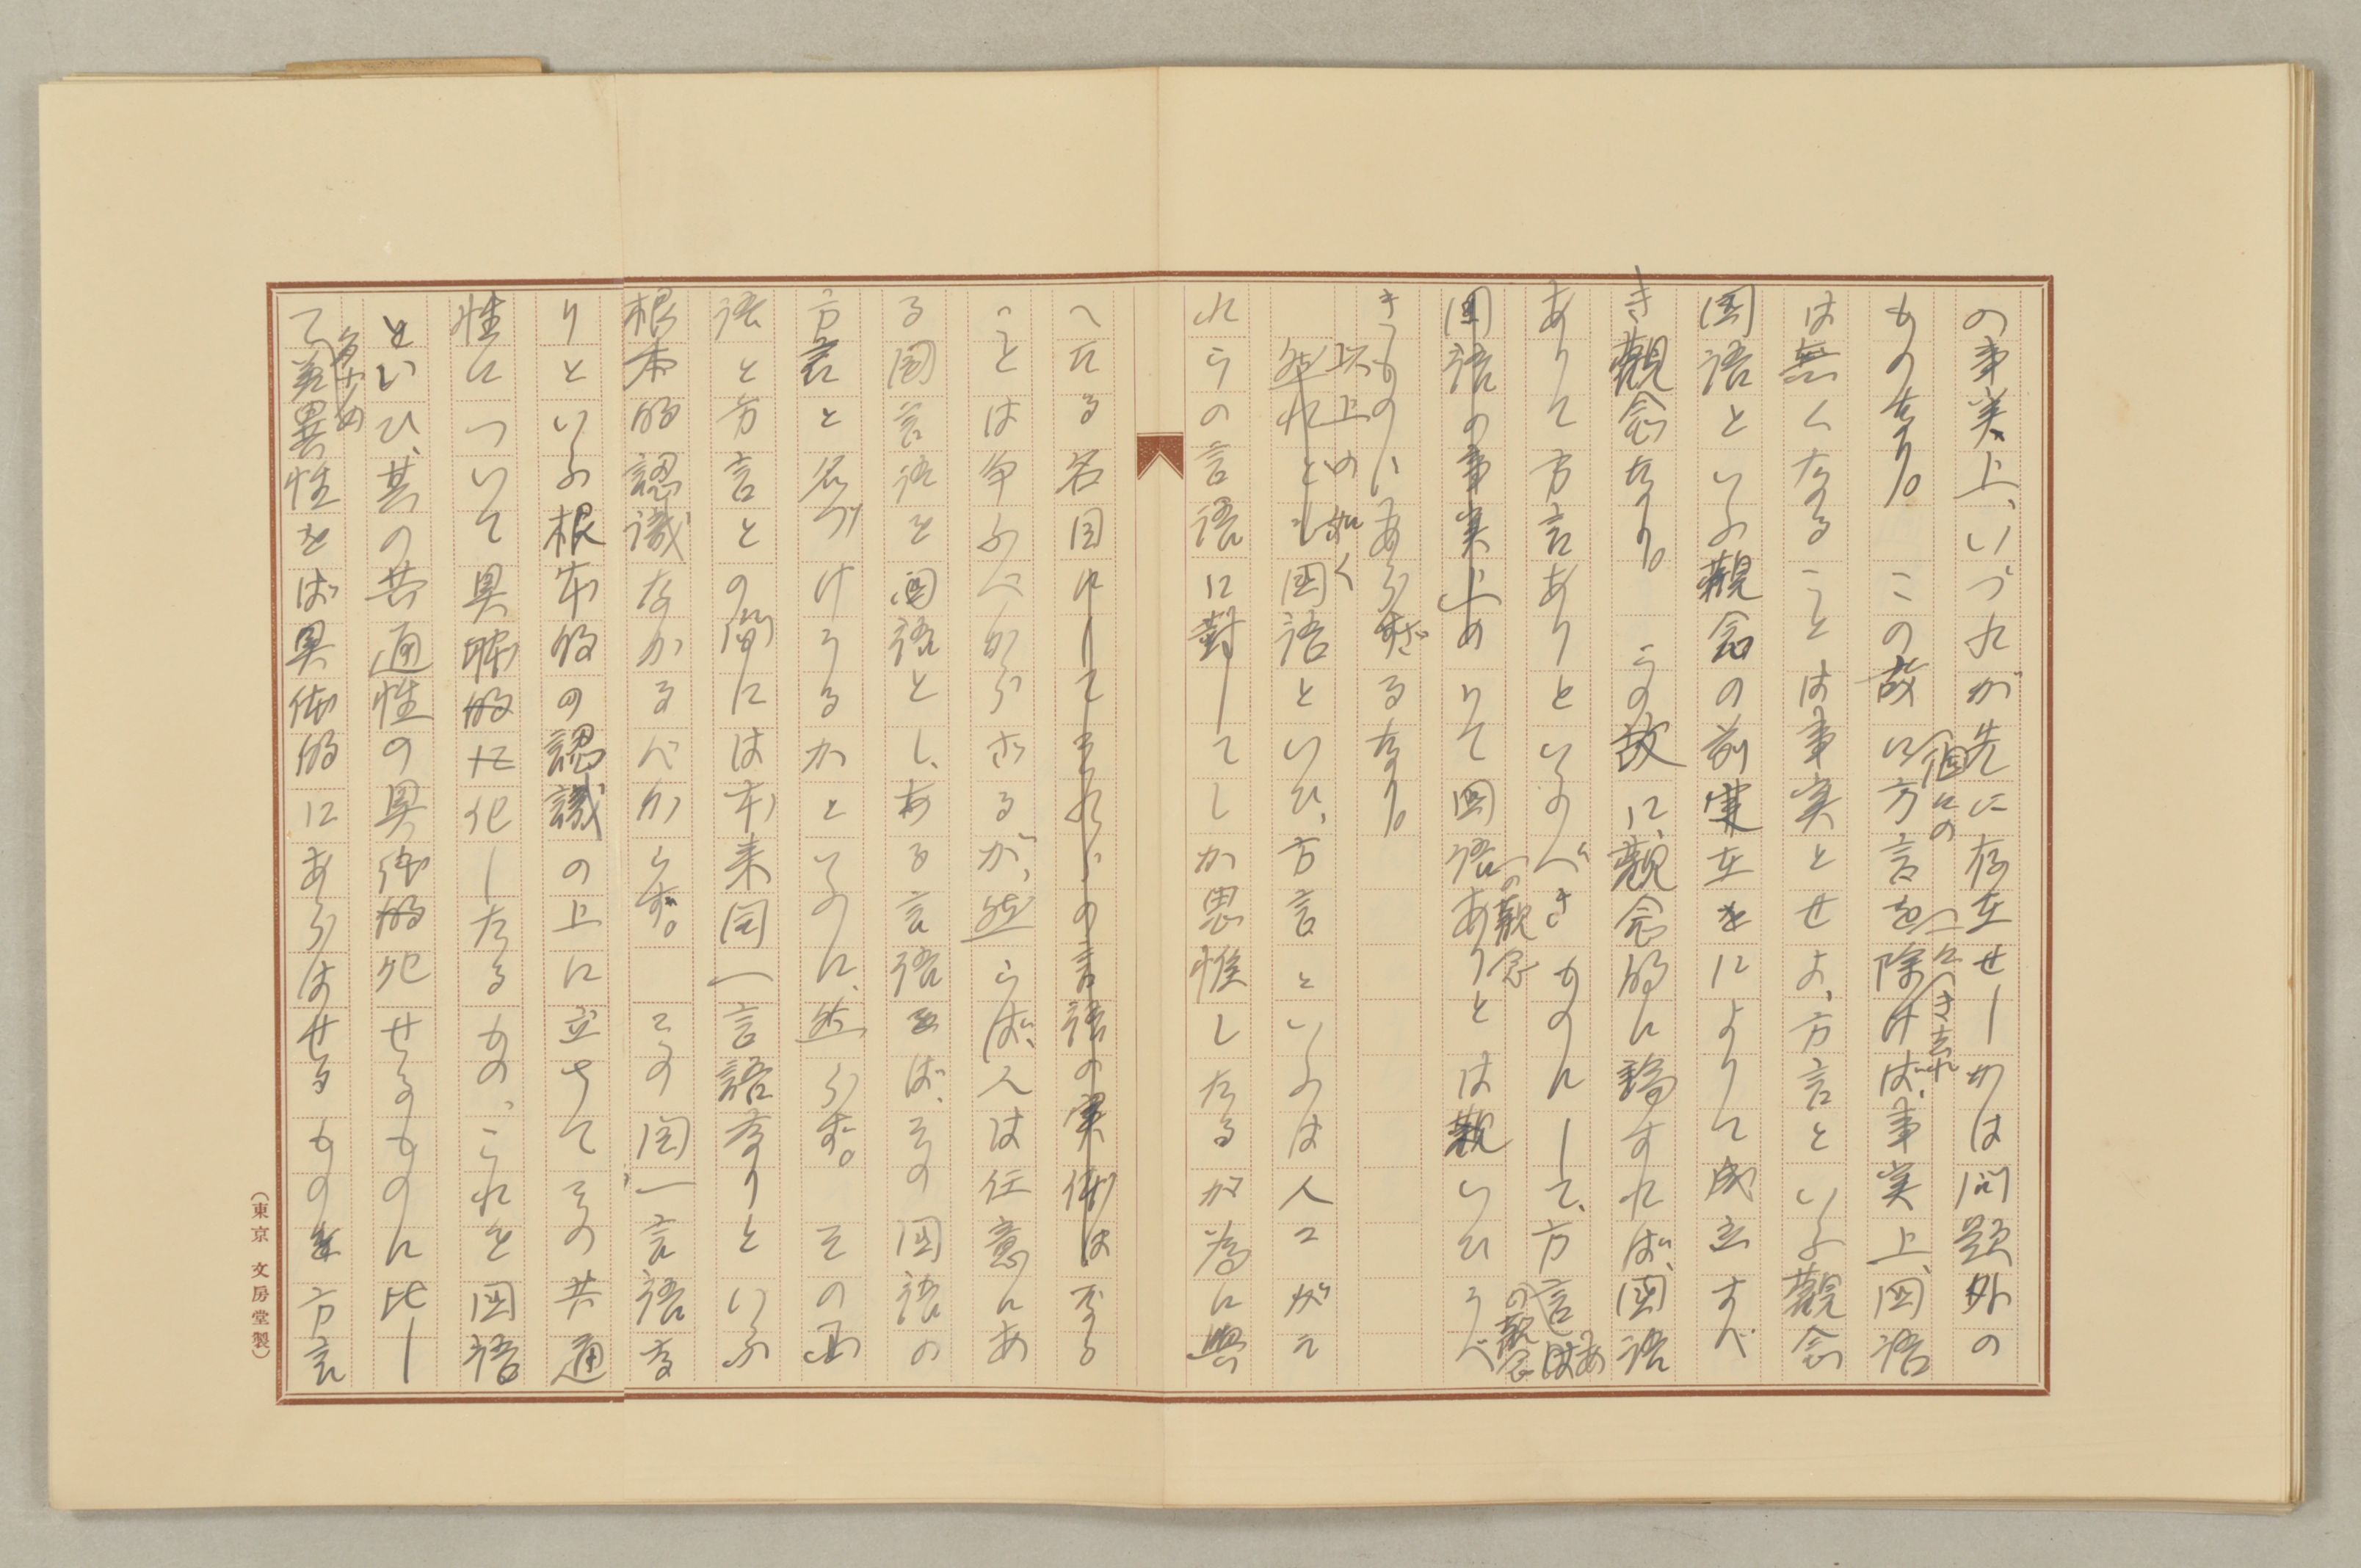 の事実上、いづれが先に存在せしかは問題外の
ものなり。この故に方言を除けば、事実上、国語
個々の
つきつき去れ
は無くなることは事実とせよ、方言といふ観念
国語といふ観念の前実在をによりて成立すべ
き観念なり。この故に、観念的に論ずれば、国語
ありて方言ありといふべきものにして、方言はあ
の観念
国語の事実上ありて国語ありとは観いひうべ
の観念
きものにあらずざるなり。
以上の如く
然れども国語といひ、方言といふは人々がこ
れらの言語に対してしか思惟したるが為に与
へたる名目にしてそれらの言語の実体は不る
ことは争ふべからざるが、然らば、人は任意にあ
る国言語を国語とし、ある言語をば、その国語の
方言と名づけうるかといふに、然らず。その国
語と方言との間には本来同一言語なりといふ
根本的認識なかるべからず。この同一言語な
りといふ根本的の認識の上に立ちてその共通
性について具体的な化したるもの、これを国語
といひ、其の共通性の具体的化せるものに比し
て差異性をば具体的にあらはせるものを方言
（東京 文房堂製）